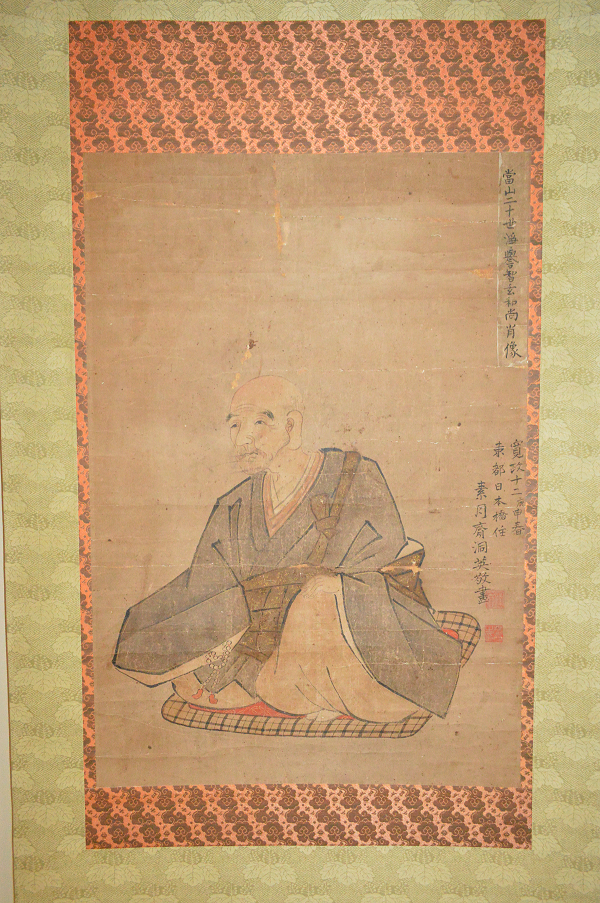 當山二十世満譽智玄和尚肖像
寛政十二庚申春
東都日本橋住
素月齋洞英敬畫